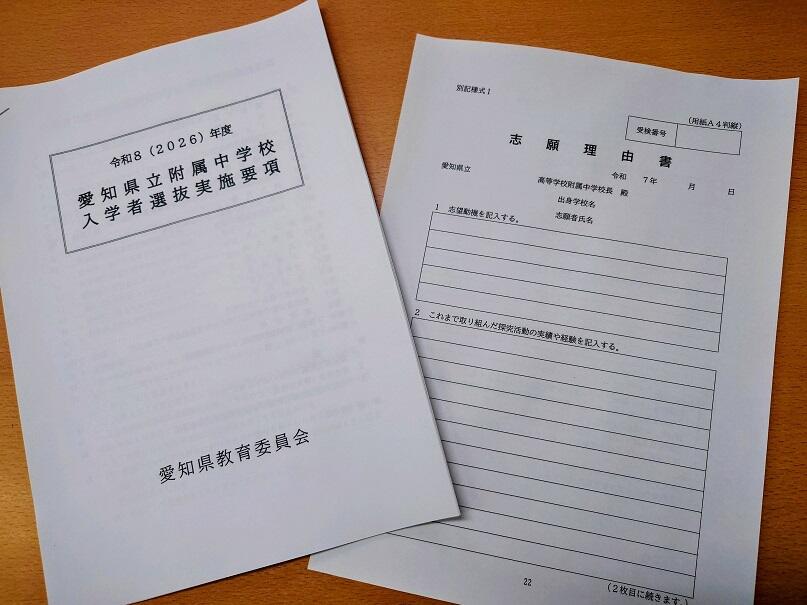 令和8(2026)年度
愛知県立附属中学校
入学者選抜実施要項
愛知県教育委員会
別記様式1
(用紙A4判縦)
受検番号
志願理由書
令和 7年 月 日
愛知県立
高等学校附属中学校長 殿
出身学校名
志願者氏名
1 志望動機を記入する。
2 これまで取り組んだ探究活動の実績や経験を記入する。
22
(2枚目に続きます。)